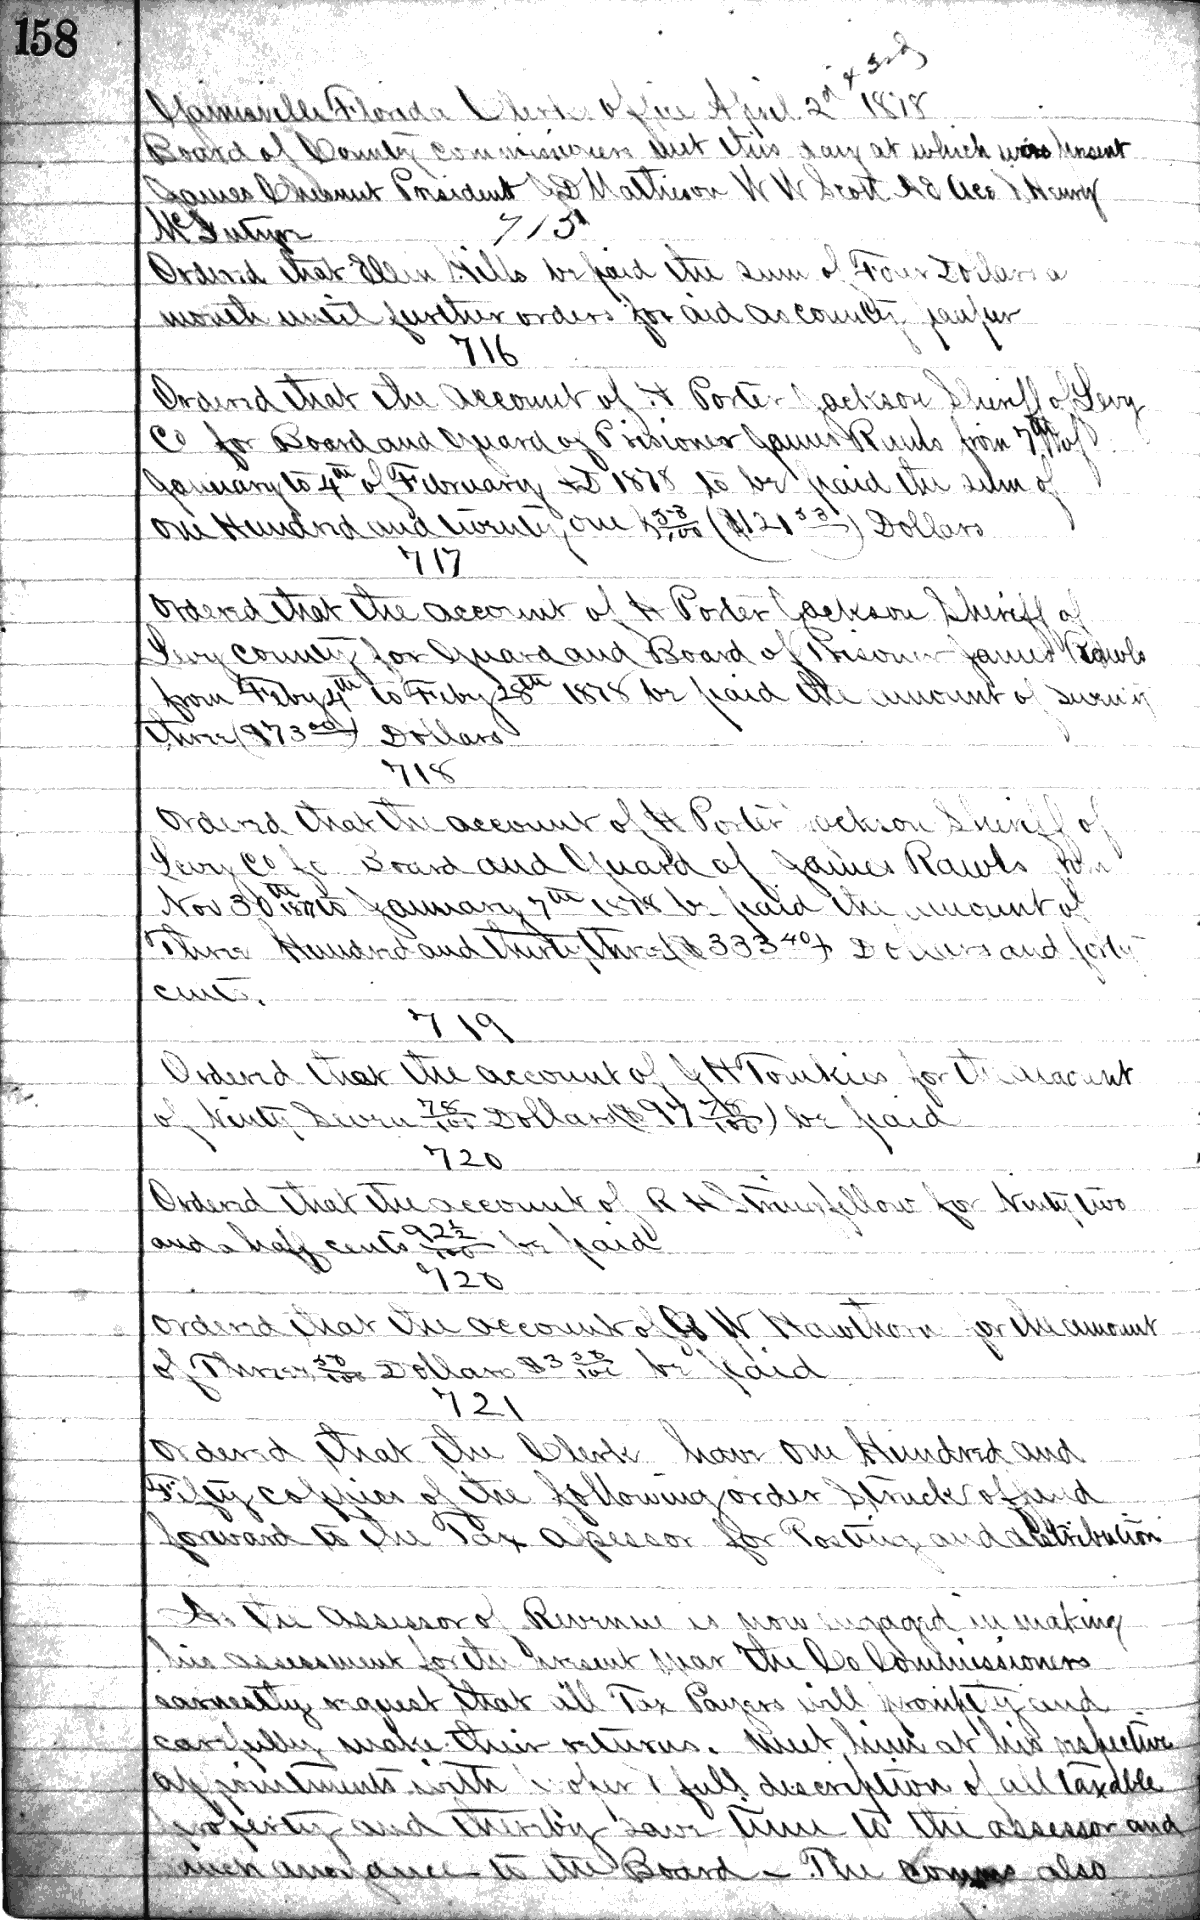 158
& 3rd
Gainesville Florida Clerks Office April 2d 1878
Board of County Commissioners met this day at which was present
James Chesnut President J D Mathison W W Scott & Henry
McIntyre
715
Ordered that Ellen Hills be paid the sum of Four Dollars a
month until further orders for aid as county pauper
716
Ordered that the account of H Porter Jackson Sheriff of Levy
Co for Board and Guard of Prisioner James from 7th of
January to 4th of February AD 1878 to be paid the sum of
One Hundred and twenty one & 53/100 ($121 53) Dollars
717
Ordered that the account of H Porter Jackson Sheriff of
Levy County for Guard and Board of Prisoner James Rawls
from Feby 4th to Feby 28th 1878 be paid the amount of Seventy
three ($73 00) Dollars
718
Ordered that the account of H Porter Jackson Sheriff of
Levy Co fo Board and Guard of James Rawls from
Nov 30th 1877 to January 7th 1878 be paid the amount of
Three Hundred and thirty three ($333 40) Dollars and forty
cents.
719
Ordered that the account of J H Tomkies for the amount
of Ninty Seven 78/100 Dollars ($97 78/100) be paid
720
Ordered that the account of R H Stringfellow for Ninty two
and a half cents 92½/100 be paid
720
Ordered that the account of G W Hawthorn for the amount
of Three 50/100 Dollars $3 50/100 be paid
721
Ordered that the Clerk have One Hundred and
Fifty coppies of the following order Struck off and
forward to the Tax assessor for Posting and distribution
As the Assessor of Revenue is now engaged in making
his assessment for the present year the Co Commissioners
earnestly request that all Tax Payers will promptly and
carefully make their returns. Meet him at his respective
appointments with proper & full description of all taxable
property and thereby save time to the assessor and
much annoyance to the Board - The Comms also